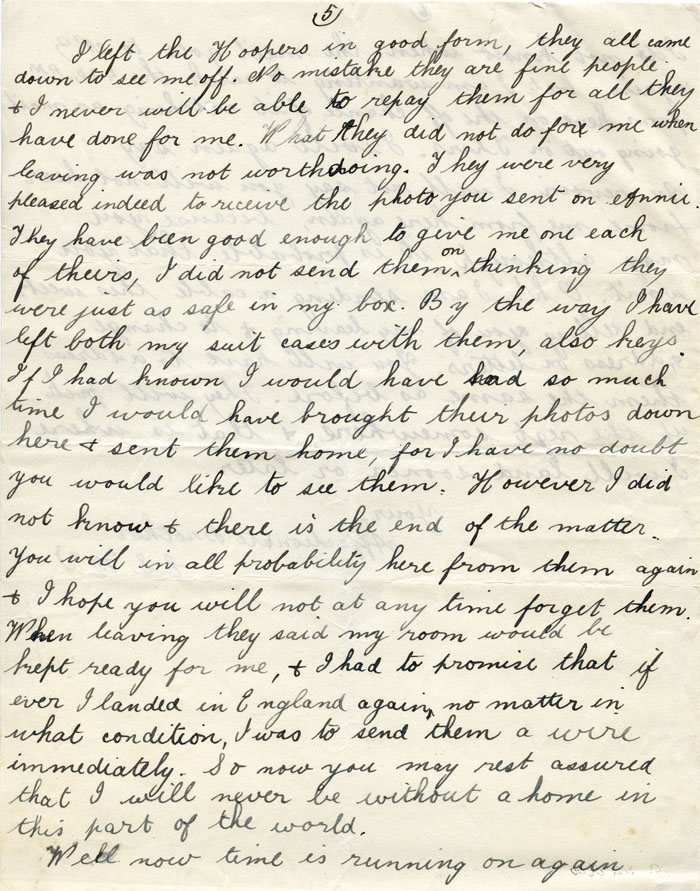 5
I left the Hoopers in good form, they all came
down to see me off. No mistake they are fine people
& I never will be able to repay them for all they
have done for me. What they did not do for me when
leaving was not worth doing. They were very
pleased indeed to receive the photo you sent on Annie.
They have been good enough to give me one each
of theirs, I did not send them on thinking they
were just as safe in my box. By the way I have
left both my suit cases with them, also keys.
If I had known I would have had so much
time I would have brought their photos down
here & sent them home, for I have no doubt
you would like to see them. However I did
not know & there is the end of the matter.
You will in all probability here from them again
& I hope you will not at any time forget them.
When leaving they said my room would be
kept ready for me, & I had to promise that if
ever I landed in England again, no matter in
what condition, I was to send them a wire
immediately. So now you may rest assured
that I will never be without a home in
this part of the world.
Well now time is running on again